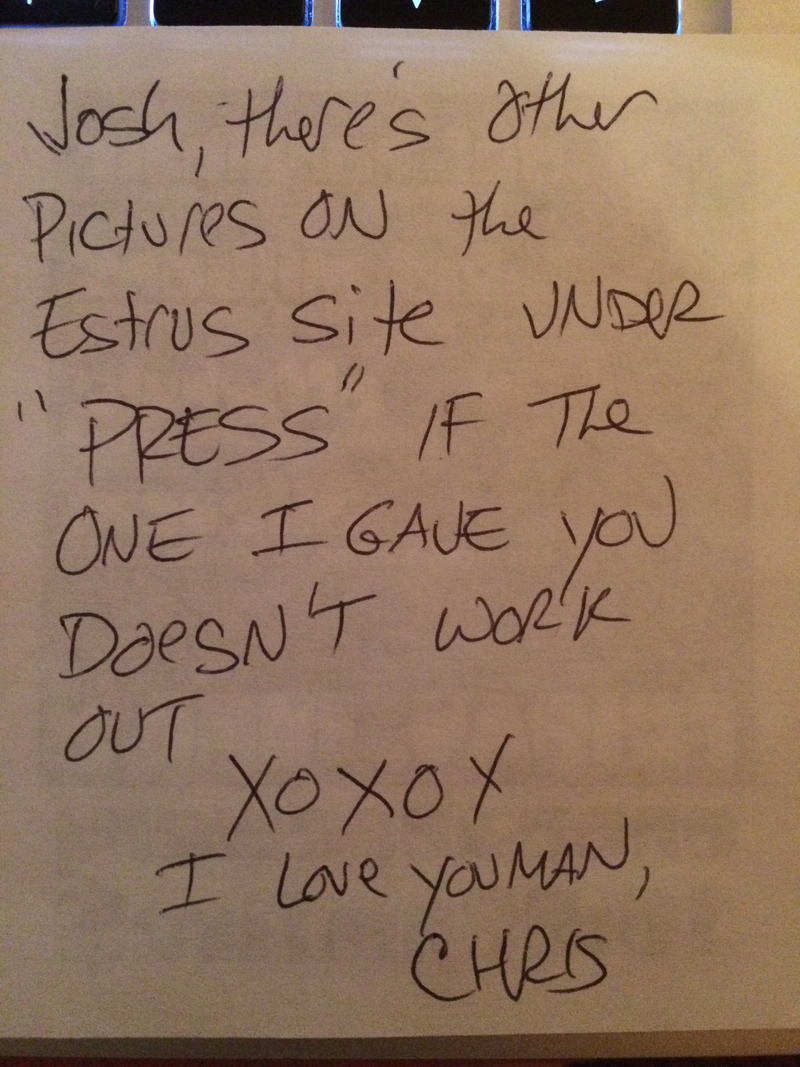 Josh, there's other
Pictures ON the
Estrus site UNDeR
"PRESS" IF The
ONE I GAVE YOU
DoeSN'T WORK
OUT
XOXOX
I Love YOU MAN,
CHRIS